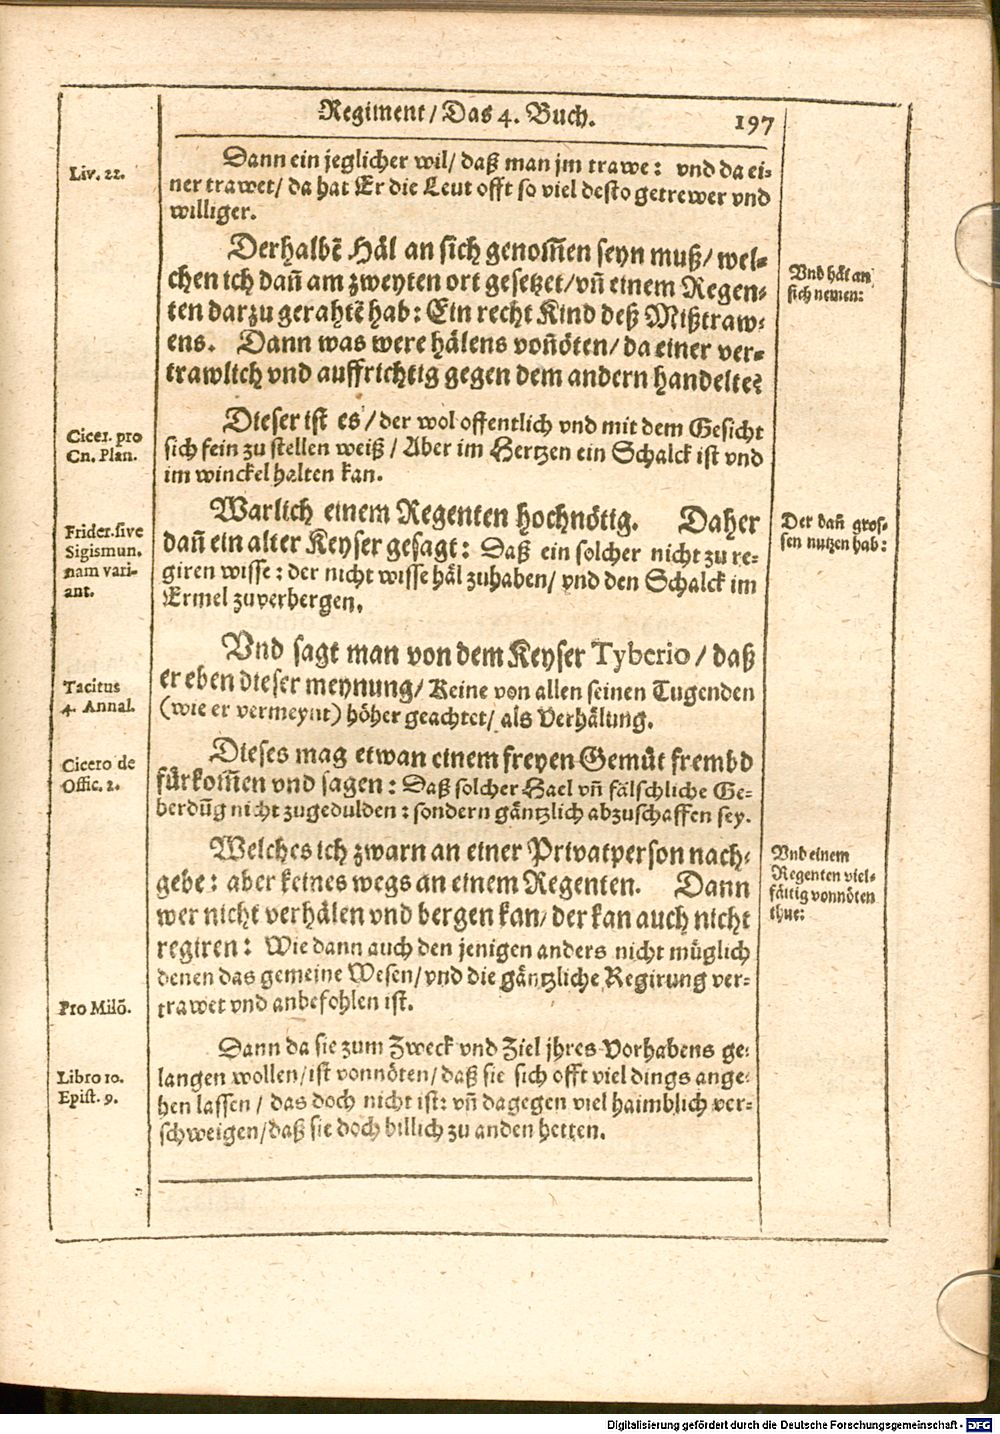 Regiment/ Das 4. Buch. 197
Liv. 22.
Dann ein jeglicher wil/ daß man jm trawe: vnd da ei-
ner trawet/ da hat Er die Leut offt so viel desto getrewer vnd
williger.
Derhalbẽ Häl an sich genom̃en seyn muß/ wel-
chen ich dañ am zweyten ort gesetzet/ vñ einem Regen-
ten darzu gerahtẽ hab: Ein recht Kind deß Mißtraw-
ens. Dann was were hälens voñöten/ da einer ver-
trawlich vnd auffrichtig gegen dem andern handelte?
Vnd häl an
sich nemen:
Cicer. pro
Cn. Plan.
Dieser ist es/ der wol offentlich vnd mit dem Gesicht
sich fein zu stellen weiß/ Aber im Hertzen ein Schalck ist vnd
im winckel halten kan.
Frider. sive
Sigismun.
nam vari-
ant.
Warlich einem Regenten hochnötig. Daher
dañ ein alter Keyser gesagt: Daß ein solcher nicht zu re-
giren wisse: der nicht wisse häl zuhaben/ vnd den Schalck im
Ermel zuverbergen.
Der dañ gros-
sen nutzen hab:
Tacitus
4. Annal.
Vnd sagt man von dem Keyser Tyberio/ daß
er eben dieser meynung/ Keine von allen seinen Tugenden
(wie er vermeynt) höher geachtet/ als Verhälung.
Cicero de
Offic. 2.
Dieses mag etwan einem freyen Gemüt frembd
fürkom̃en vnd sagen: Daß solcher Hael vñ fälschliche Ge-
berdũg nicht zugedulden: sondern gäntzlich abzuschaffen sey.
Welches ich zwarn an einer Privatperson nach-
gebe: aber keines wegs an einem Regenten. Dann
wer nicht verhälen vnd bergen kan/ der kan auch nicht
regiren: Wie dann auch den jenigen anders nicht müglich
denen das gemeine Wesen/ vnd die gäntzliche Regirung ver-
trawet vnd anbefohlen ist.
Vnd einem
Regenten viel-
fältig vonnöten
thue:
Pro Milõ.
Libro 10.
Epist. 9.
Dann da sie zum Zweck vnd Ziel jhres Vorhabens ge-
langen wollen/ ist vonnöten/ daß sie sich offt viel dings ange-
hen lassen/ das doch nicht ist: vñ dagegen viel haimblich ver-
schweigen/ daß sie doch billich zu anden hetten.
Digitalisierung gefördert durch die Deutsche Forschungsgemeinschaft - DFG